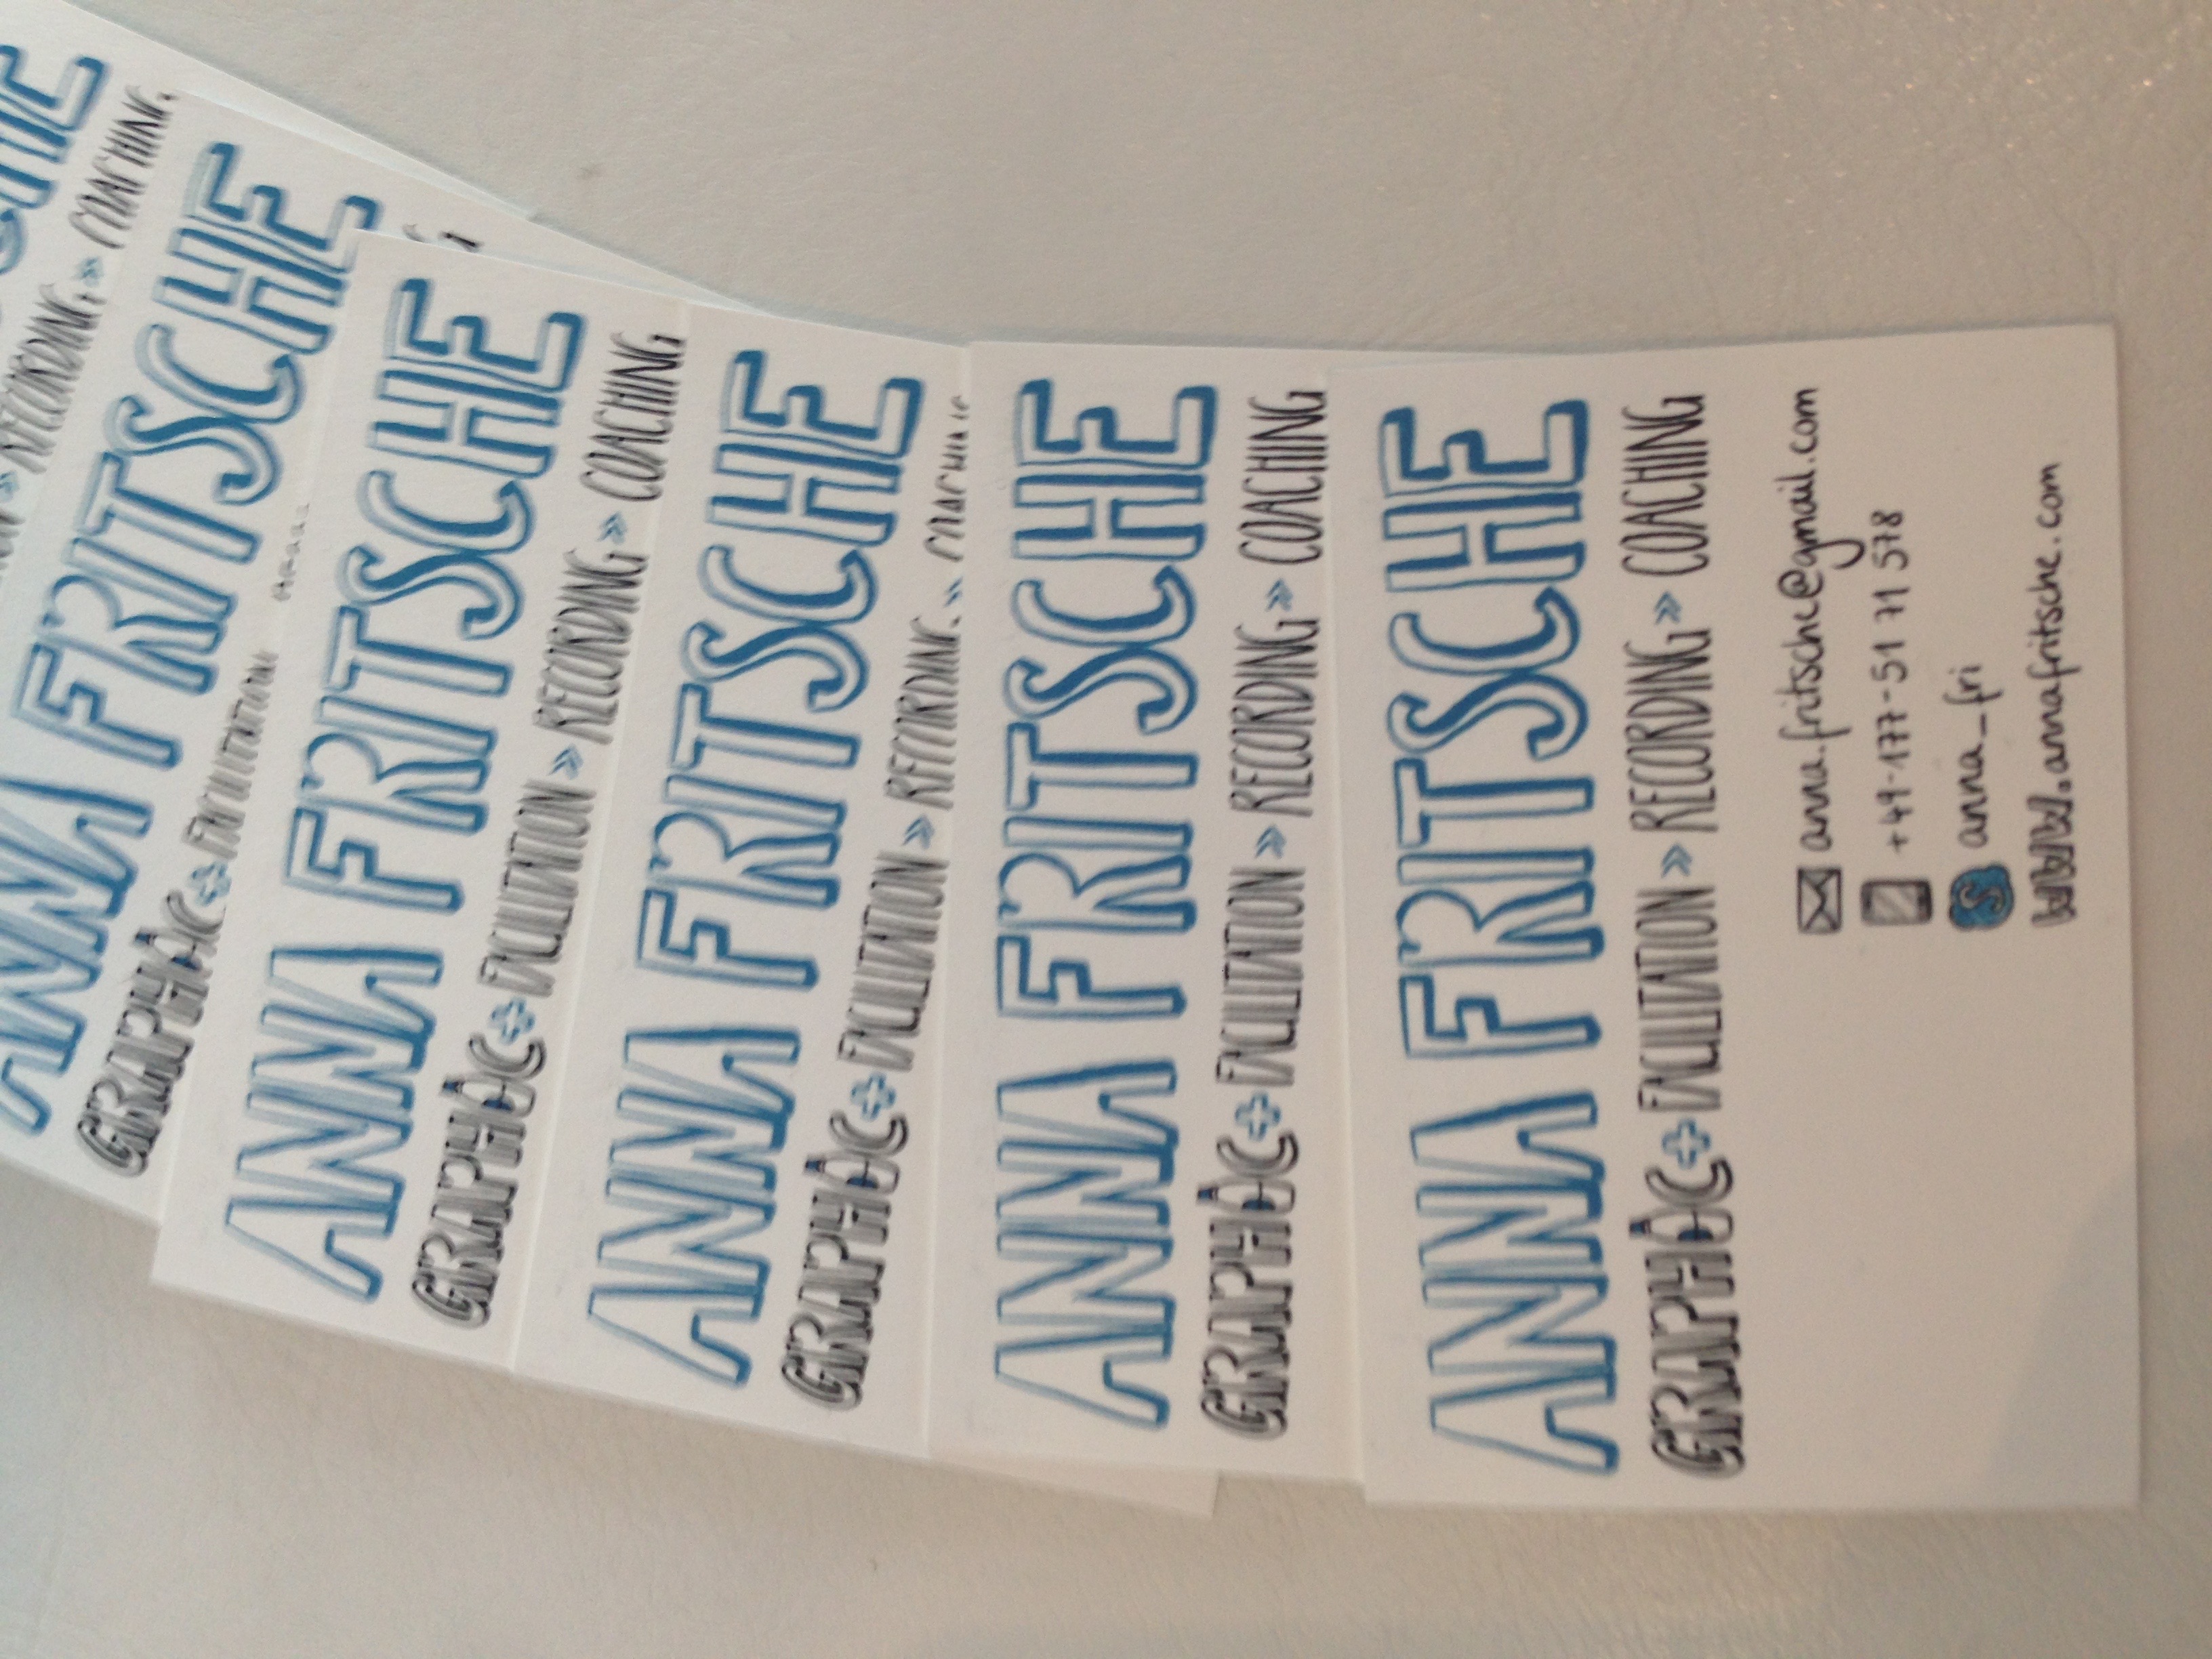 ANNA FRITSCHE
GRAPHIC + FACILITATION » RECORDING » COACHING
anna.fritsche@gmail.com
+49-177-51 71 578
anna_fri
www.annafritsche.com
ANNA FRITSCHE
GRAPHIC + FACILITATION » RECORDING » COACHING
ANNA FRITSCHE
GRAPHIC + FACILITATION » RECORDING » COACHING
ANNA FRITSCHE
GRAPHIC + FACILITATION » RECORDING » COACHING
ANNA FRITSCHE
GRAPHIC + FACILITATION
RECORDING » COACHING